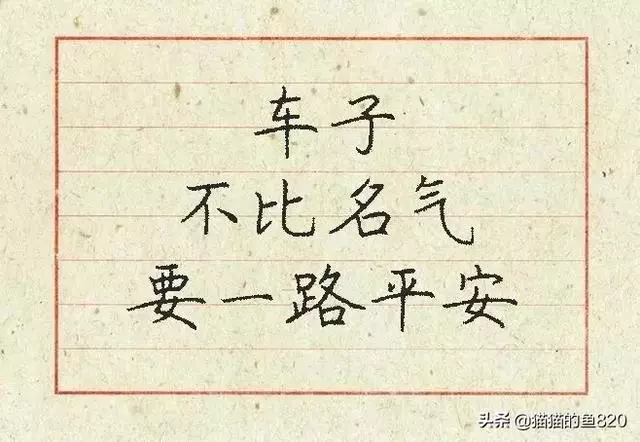 车子
不比名气
要一路平安
头条 @猫猫的鱼820